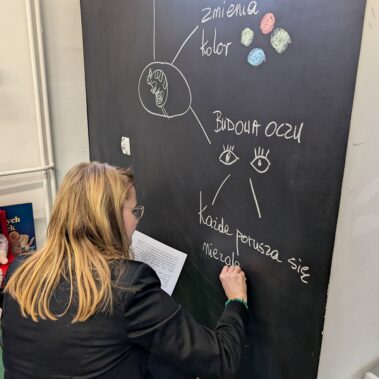 zmienia
kolor
BUDOWA OCZU
Każde porusza się
niezal